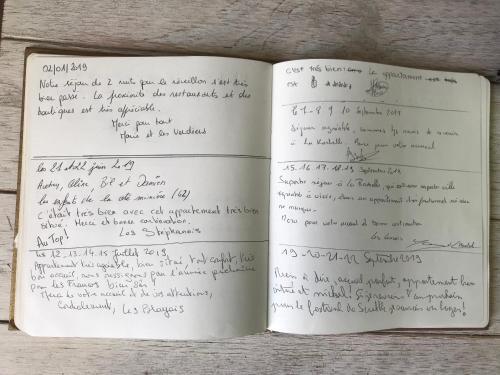 02/01/2019
Notre séjour de 2 nuits pour le réveillon s'est très
bien passé. La proximité des restaurants et des
boutiques est très appréciable.
Merci pour tout
Marie et les Vendéens
les 21 et 22 juin 2019
Audrey, Aline, et Damien
les enfants de la mine (62)
C'était très bien avec cet appartement très bien
situé. Merci et bonne continuation.
Au Top! Les Stéphanois
Les 12-13-14-15 juillet 2019,
Appartement très agréable, bien situé, tout confort, très
bon accueil, nous reviendrons pour l'année prochaine
pour les Francos bien sûr!
Merci de votre accueil et de vos attentions,
Cordialement, Les Blayais
C'est très bien: Le appartement
est
Le 7-8-9 10 Septembre 2019
Séjour agréable, sommes de revenir
à La Rochelle. Merci pour votre accueil
15.16.17.18.19 Septembre 2019
Superbe séjour à La Rochelle, qui est une superbe ville
agréable à vivre, dans un appartement très fonctionnel où rien
ne manque.
Merci pour votre accueil et bonne continuation
19-20-21-22 Septembre 2019
Rien à dire, accueil parfait, appartement bien
situé et nickel! Si prévu l'an prochain
pour le festival de